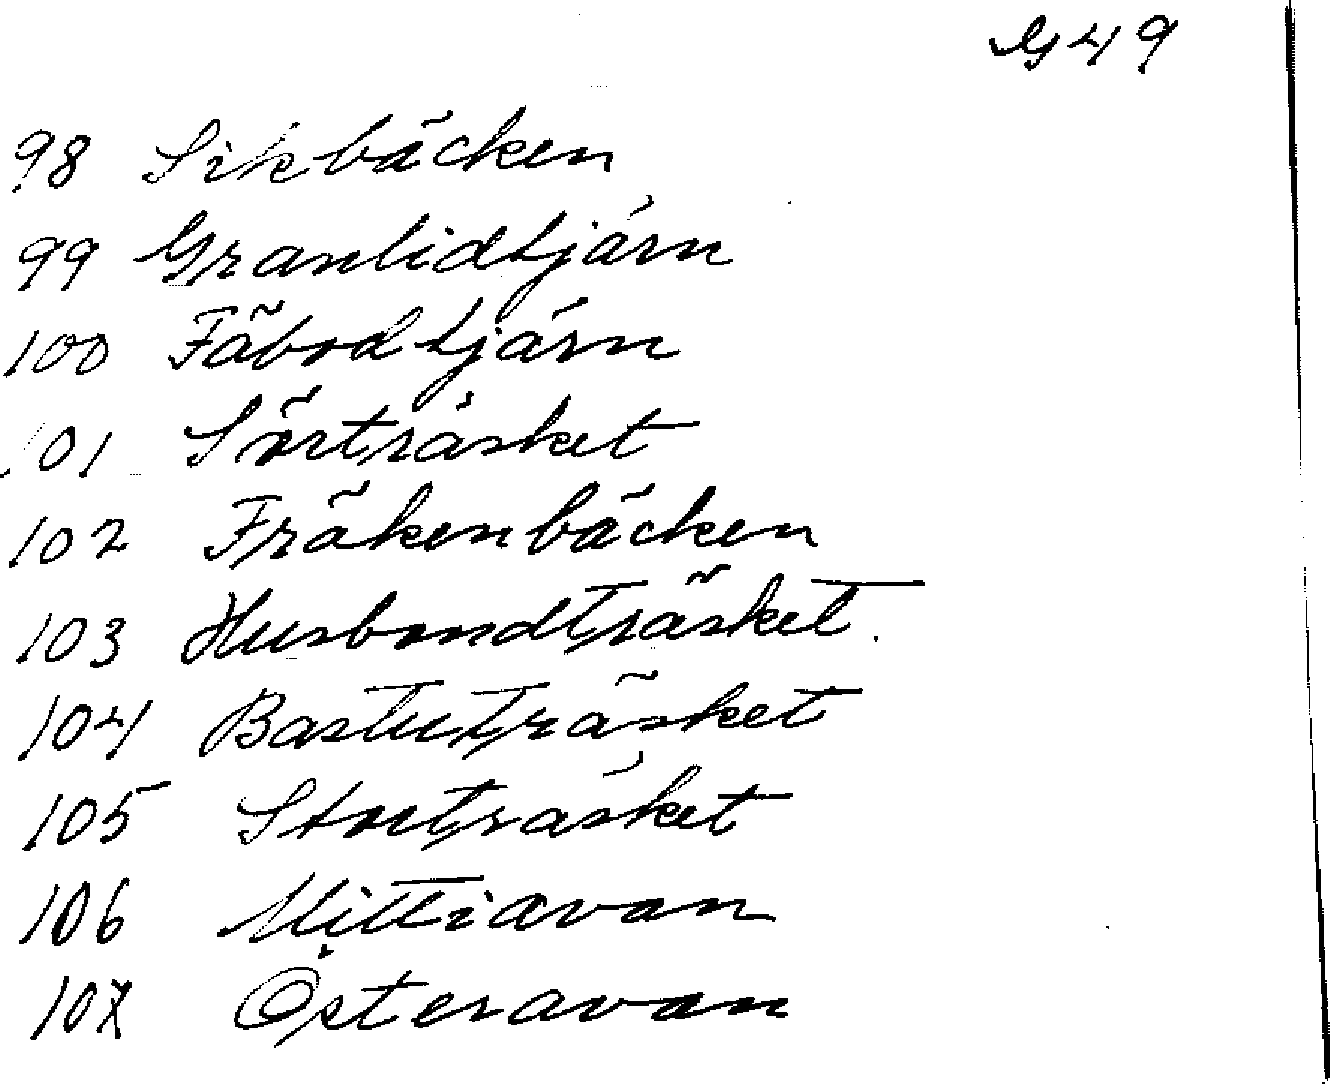 G 49
98 Sikbäcken
99 Granlidtjärn
100 Fäbodtjärn
101 Sörträsket
102 Fräkenbäcken
103 Husbondträsket.
104 Bastuträsket
105 Storträsket
106 Mittiavan
107 Österavan